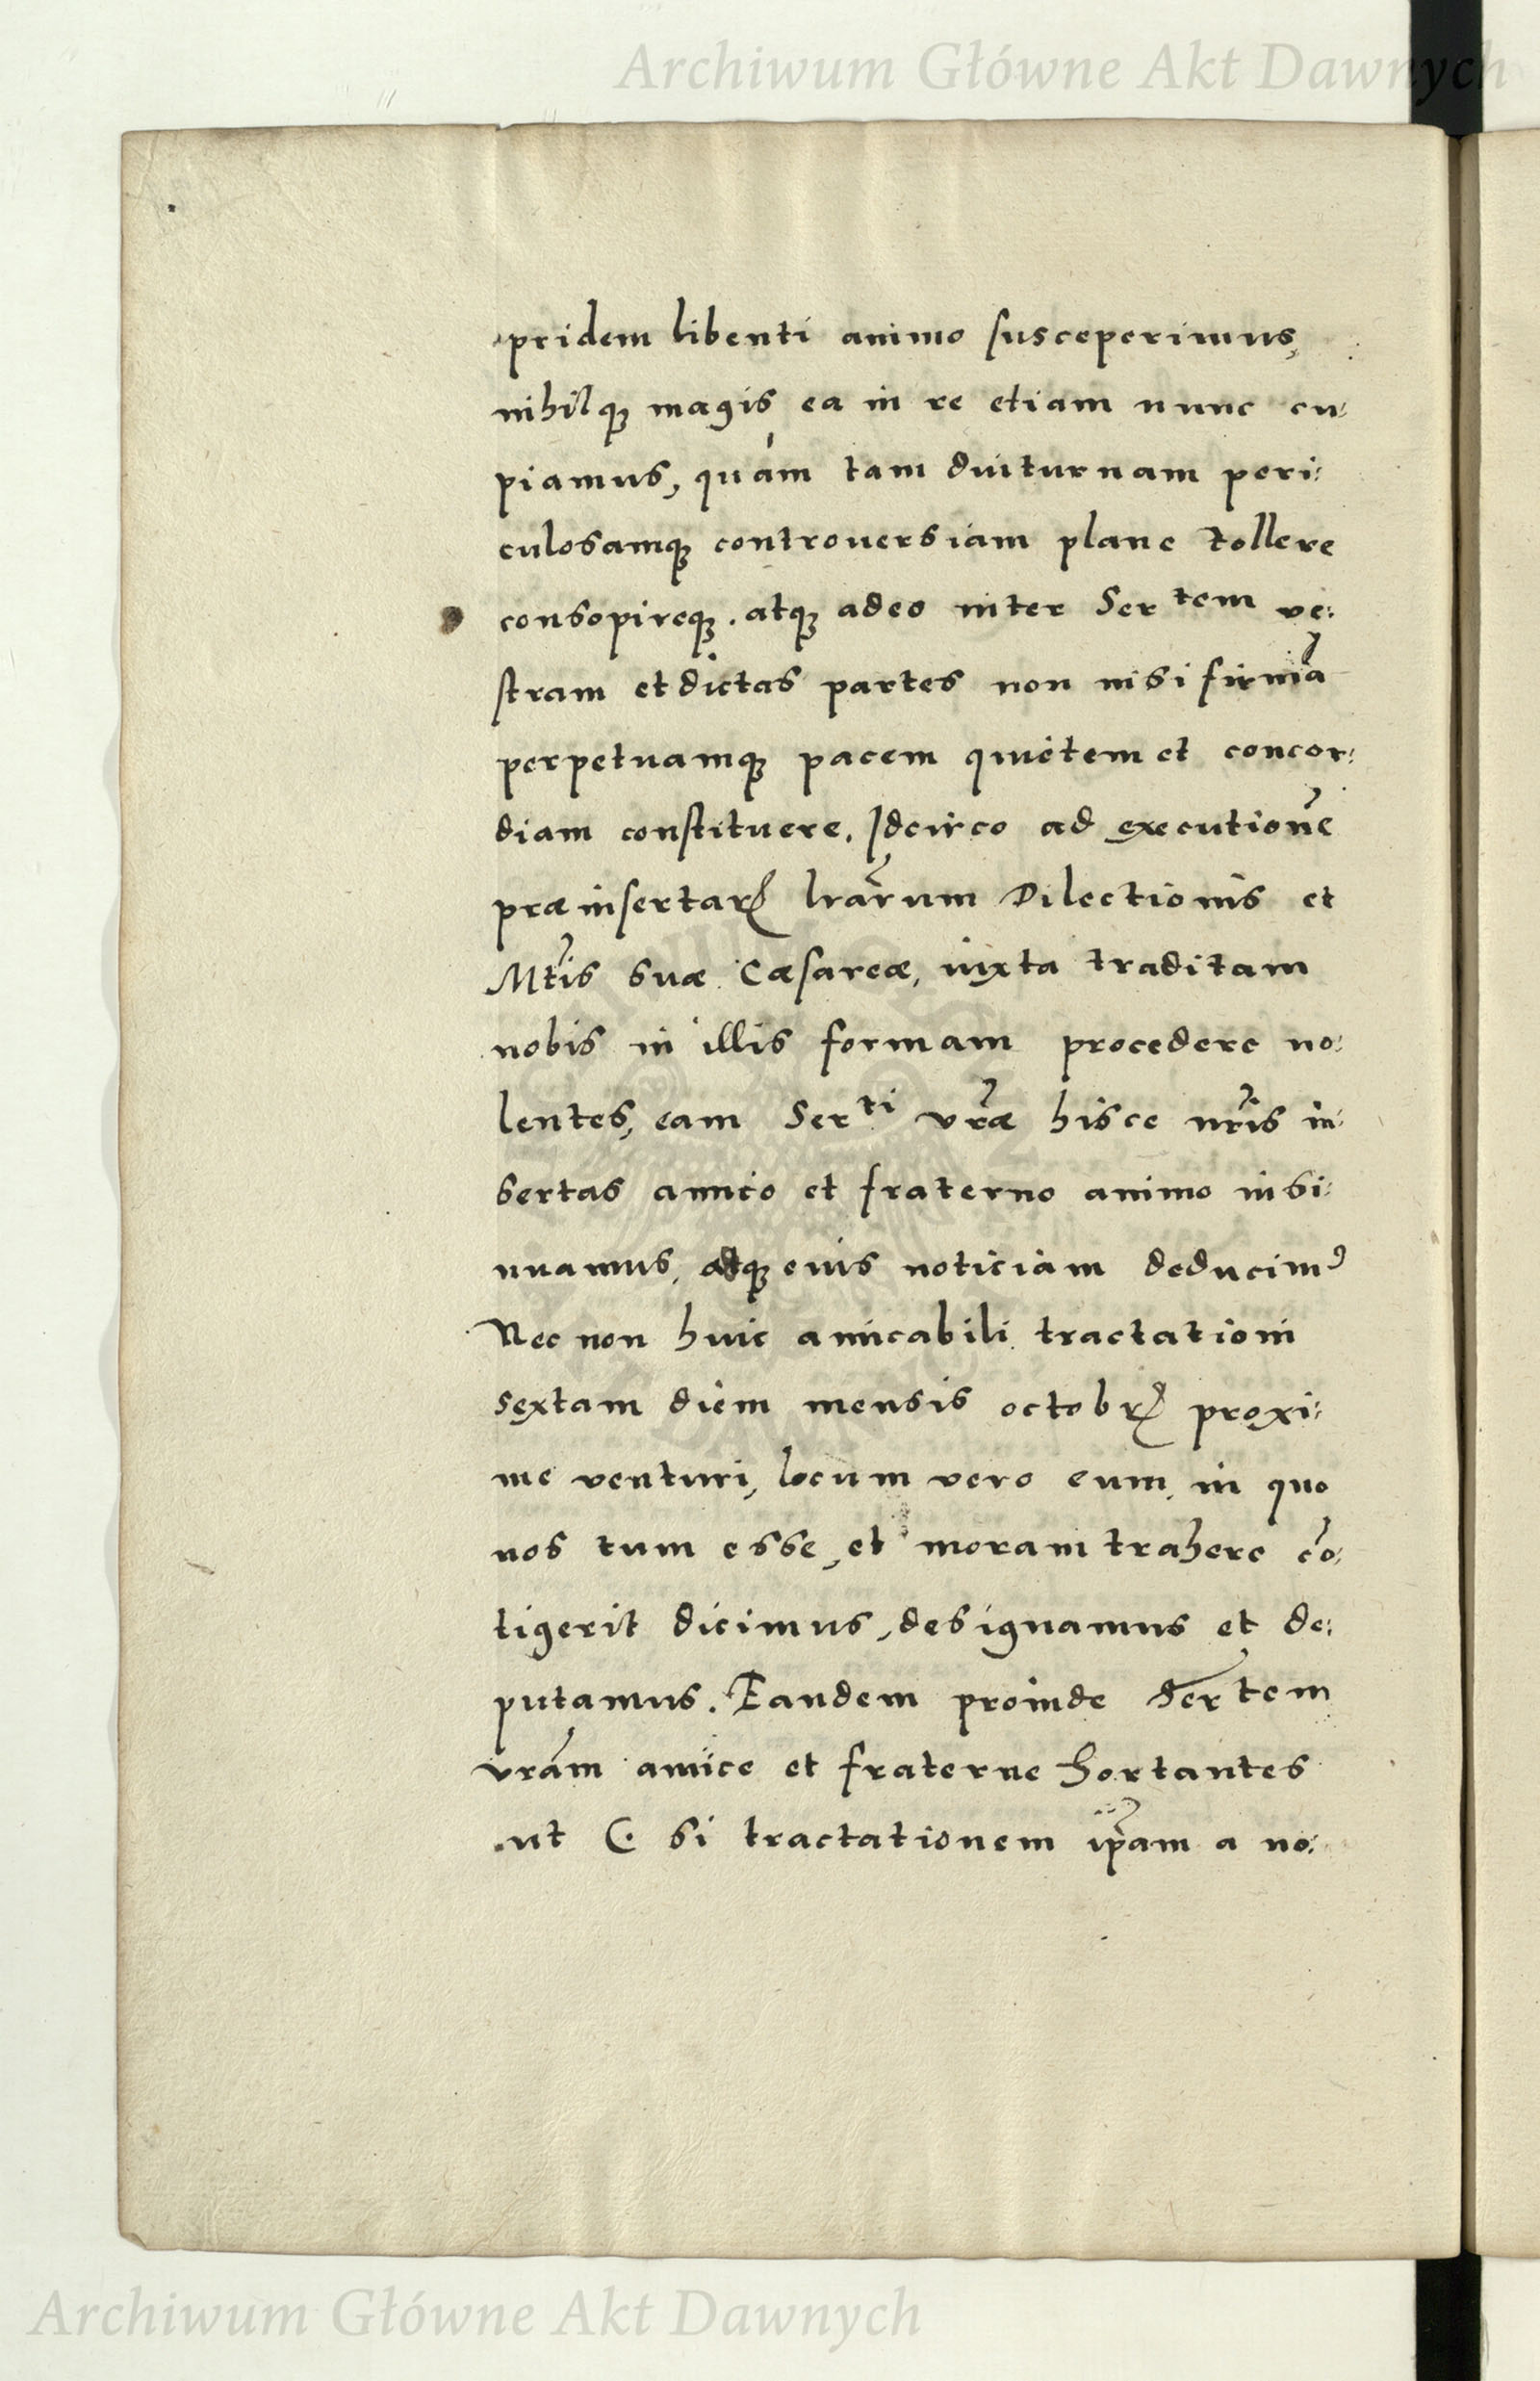 Archiwum Główne Akt Dawnych
pridem libenti animo susceperimus,
nihilq; magis ea in re etiam nunc cu:
piamus, quàm tam diuturnam peri:
culosamq; controuersiam plane tollere
consopireq;. atq; adeo inter Ser tem ve:
stram et dictas partes non nisi firmã
perpetuamq; pacem quietem et concor:
diam constituere. Idcirco ad executionẽ
præinsertarꝝ lr̃arum Dilectionis et
Mt̃is suæ Cæsareæ, iuxta traditam
nobis in illis formam procedere no:
lentes, eam Ser ti vr̃æ hisce nr̃is in:
sertas amico et fraterno animo insi:
nuamus, atq; eius noticiam deducimꝰ
Nec non huic amicabili tractationi
sextam diem mensis octobrꝭ proxi:
me venturi, locum vero eum, in quo
nos tum esse, et moram trahere cõ:
tigerit dicimus, designamus et de:
putamus. Eandem proinde Ser tem
vr̃am amice et fraterne hortantes
ut C. si tractationem ip̃am a no:
Archiwum Główne Akt Dawnych